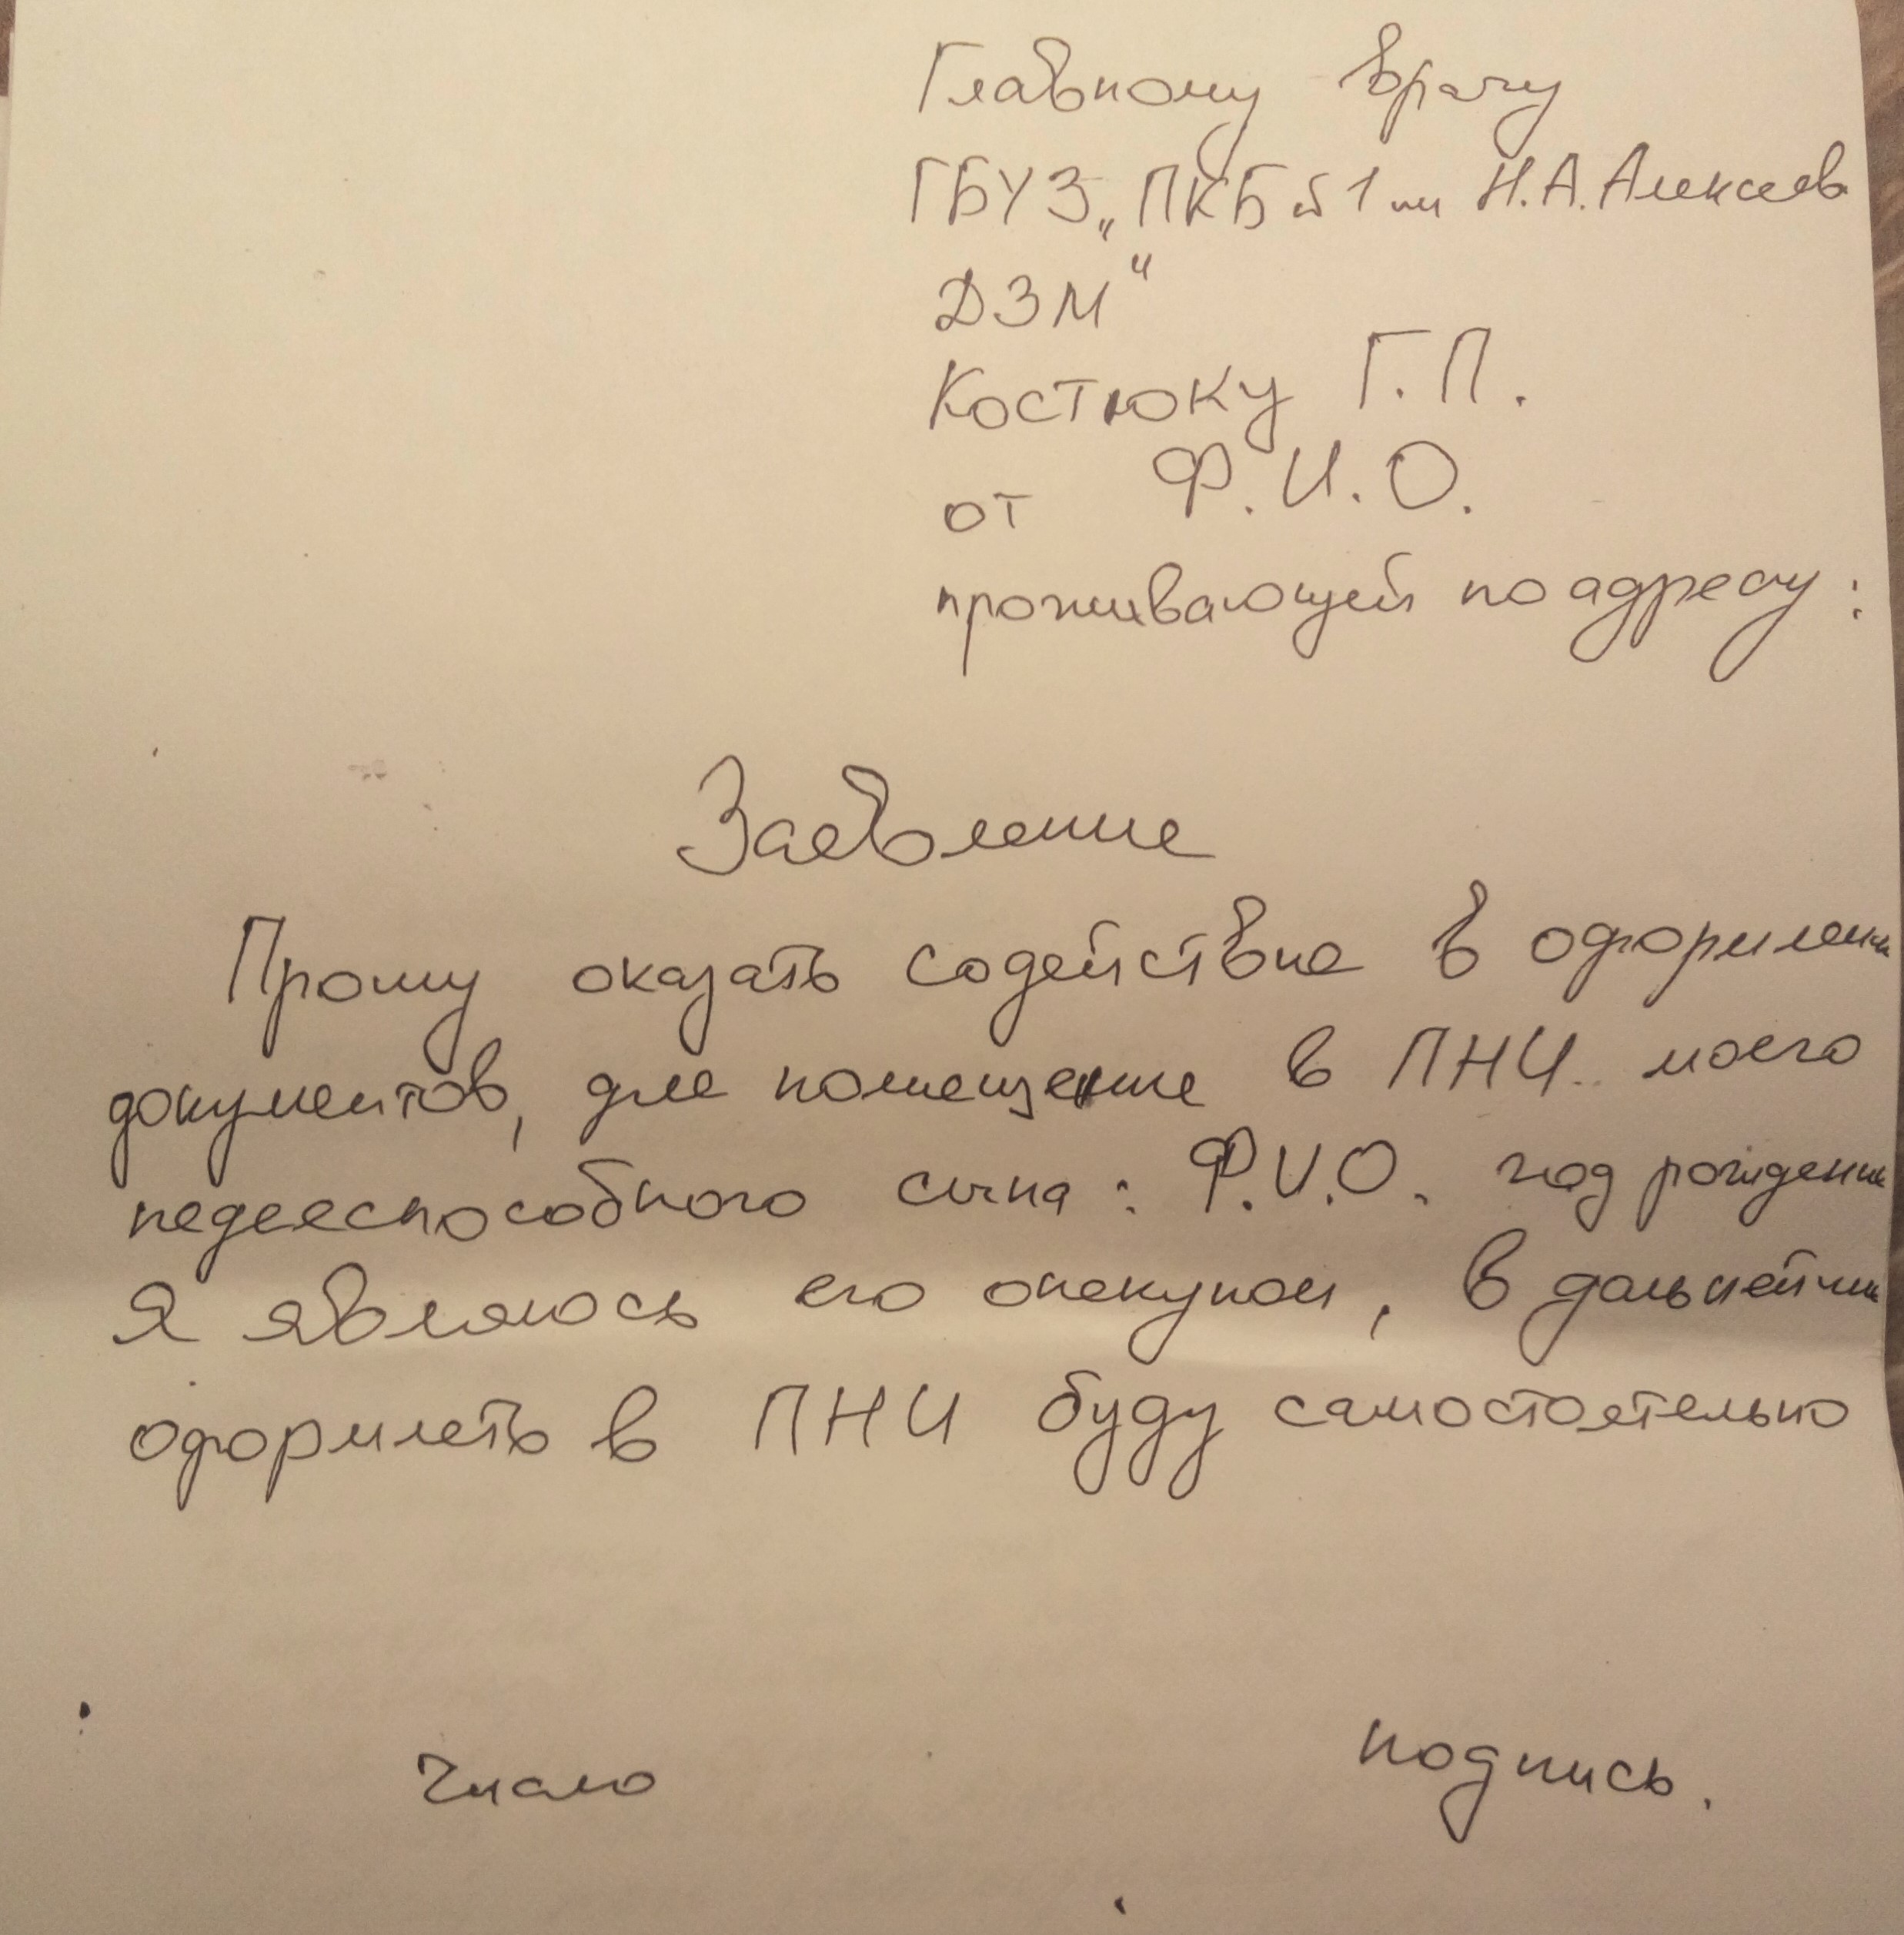 Главному врачу
ГБУЗ „ПКБ №1 им Н.А.Алексеева
ДЗМ“
Костюку Г.П.
от Ф.И.О.
проживающей по адресу:
Заявление
Прошу оказать содействие в оформлении
документов, для помещение в ПНИ моего
недееспособного сына: Ф.И.О. год рождения
Я являюсь его опекуном, в дальнейшем
оформлять в ПНИ буду самостоятельно
Число подпись.